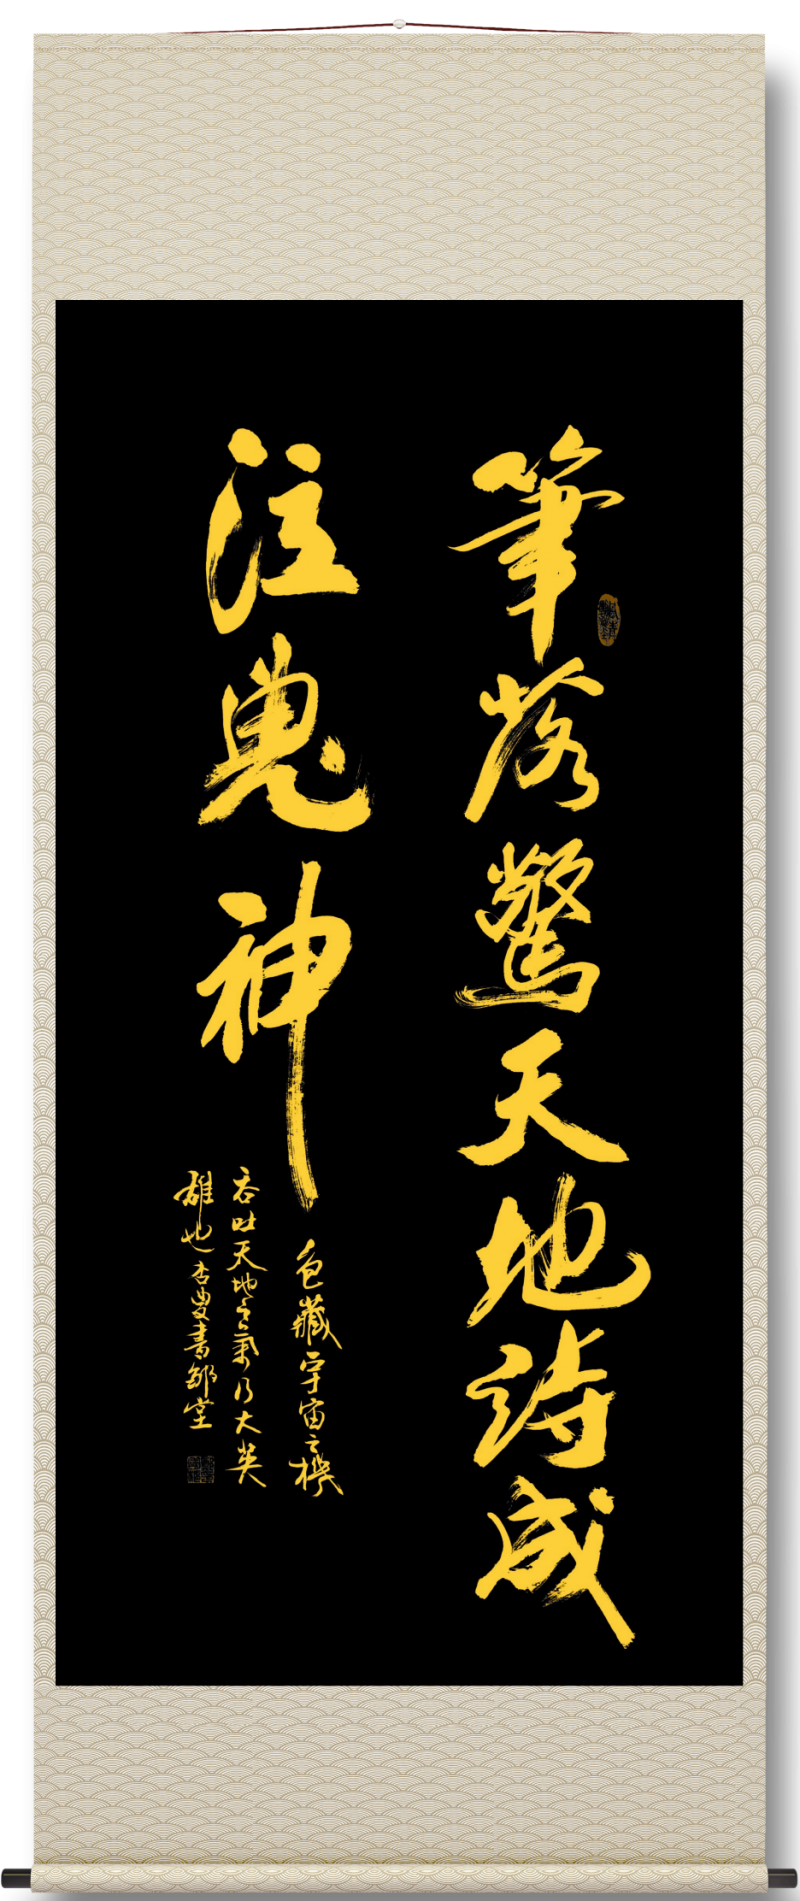 筆落驚天地詩成
泣鬼神
包藏宇宙之機
吞吐天地之氣乃大英
雄也杏叟書堂